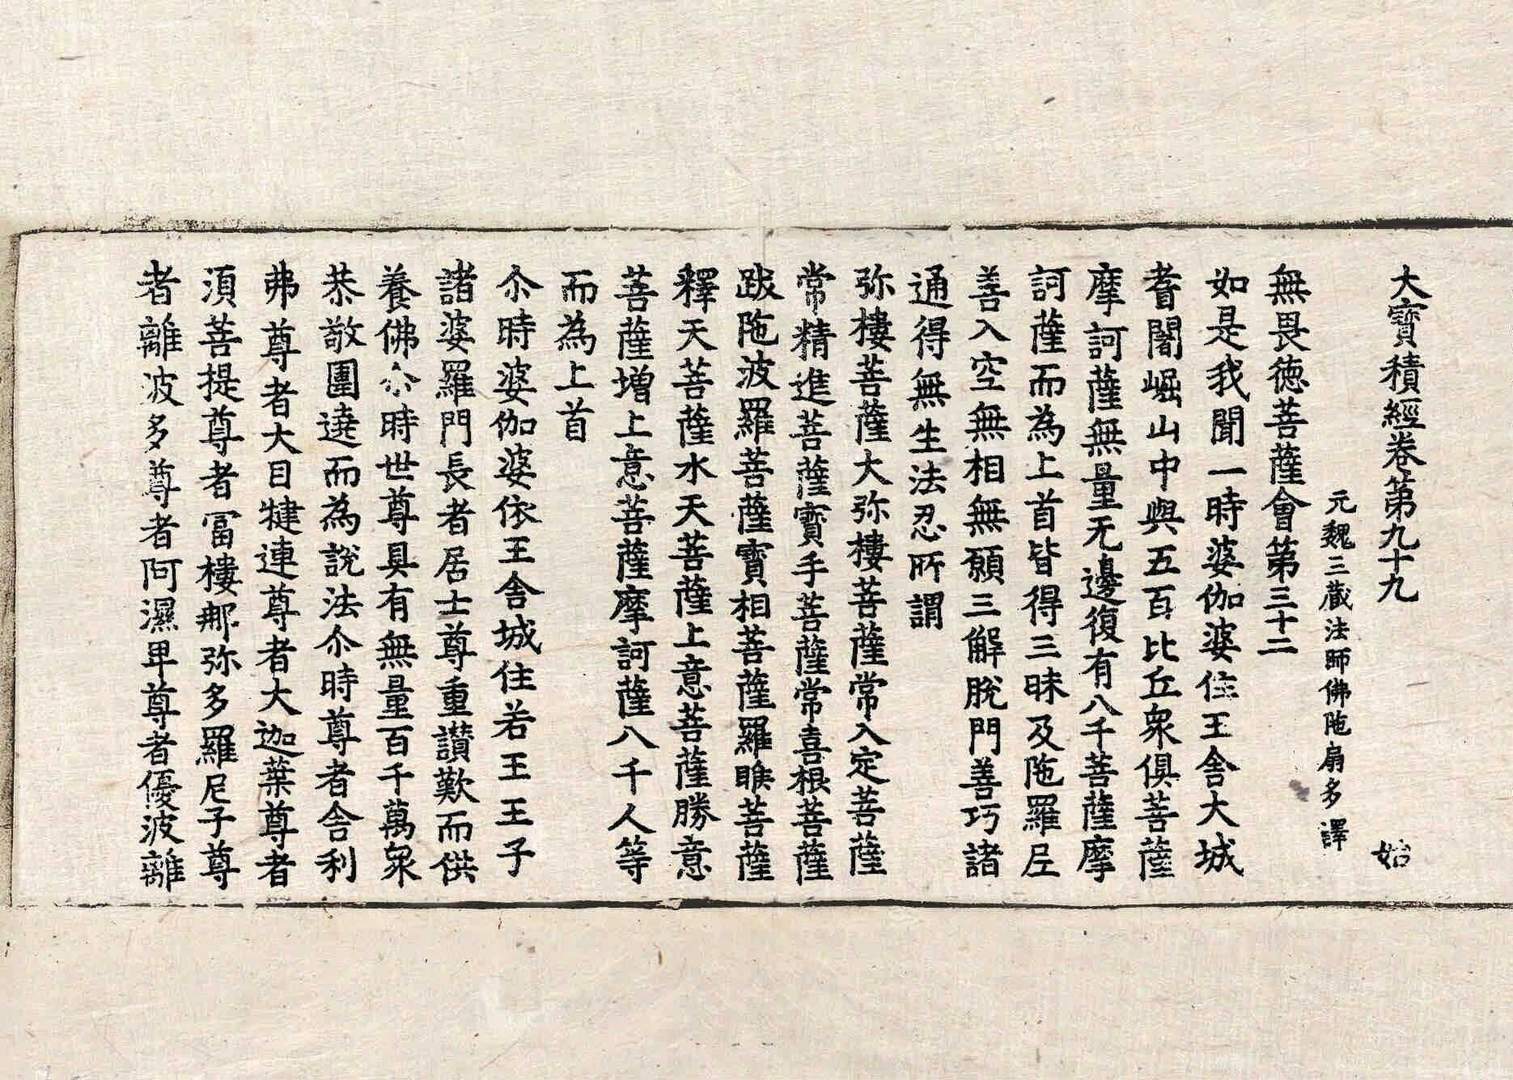 大寶積經卷第九十九 始
元魏三藏法師佛陁扇多譯
無畏德菩薩會第三十二
如是我聞一時婆伽婆住王舍大城
耆闍崛山中與五百比丘衆俱菩薩
摩訶薩無量无邊復有八千菩薩摩
訶薩而為上首皆得三昧及陁羅尼
善入空無相無願三解脫門善巧諸
通得無生法忍所謂
弥樓菩薩大弥樓菩薩常入定菩薩
常精進菩薩寶手菩薩常喜根菩薩
跋陁波羅菩薩寶相菩薩羅睺菩薩
釋天菩薩水天菩薩上意菩薩勝意
菩薩增上意菩薩摩訶薩八千人等
而為上首
尒時婆伽婆依王舍城住若王王子
諸婆羅門長者居士尊重讃歎而供
養佛尒時世尊具有無量百千萬衆
恭敬圍遶而為說法尒時尊者舎利
弗尊者大目揵連尊者大迦葉尊者
須菩提尊者冨樓那弥多羅尼子尊
者離波多尊者阿濕卑尊者優波離